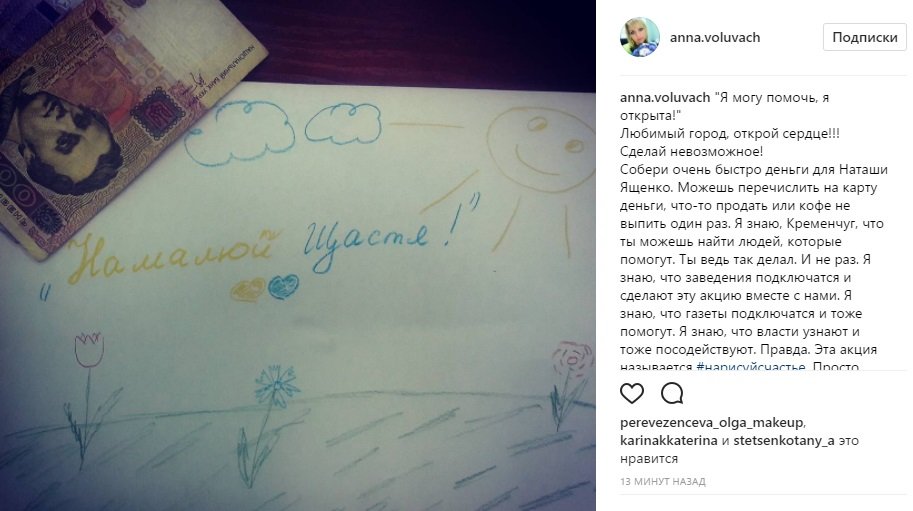 НАЦІОНАЛЬНИЙ БАНК УКРА
100
"Намалюй Щастя!"
anna.voluvach
Подписки
anna.voluvach "Я могу помочь, я
открыта!"
Любимый город, открой сердце!!!
Сделай невозможное!
Собери очень быстро деньги для Наташи
Ященко. Можешь перечислить на карту
деньги, что-то продать или кофе не
выпить один раз. Я знаю, Кременчуг, что
ты можешь найти людей, которые
помогут. Ты ведь так делал. И не раз. Я
знаю, что заведения подключатся и
сделают эту акцию вместе с нами. Я
знаю, что газеты подключатся и тоже
помогут. Я знаю, что власти узнают и
тоже посодействуют. Правда. Эта акция
называется #нарисуйсчастье. Просто
perevezenceva_olga_makeup,
karinakkaterina и stetsenkotany_a это
нравится
13 МИНУТ НАЗАД